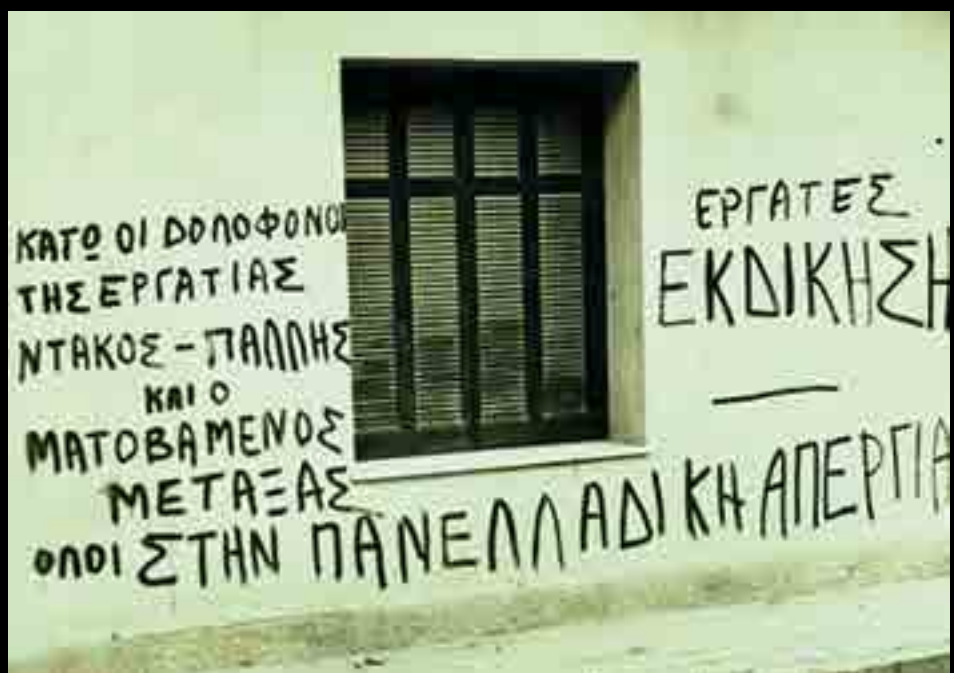 ΚΑΤΩ ΟΙ ΔΟΛΟΦΟΝΟΙ
ΤΗΣ ΕΡΓΑΤΙΑΣ
ΝΤΑΚΟΣ - ΠΑΛΛΗΣ
ΚΑΙ Ο
ΜΑΤΟΒΑΜΕΝΟΣ
ΜΕΤΑΞΑΣ
ΕΡΓΑΤΕΣ
ΕΚΔΙΚΗΣΗ
ΟΛΟΙ ΣΤΗΝ ΠΑΝΕΛΛΑΔΙΚΗ ΑΠΕΡΓΙΑ